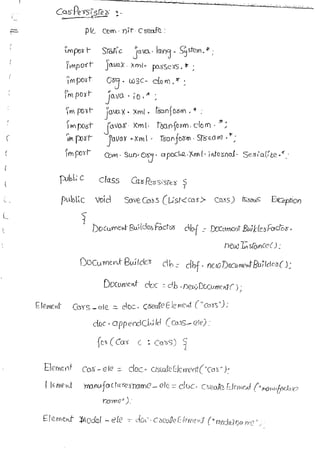 CarPersister :-
pk com.nit.create:
import static java.lang.System.*;
import javax.xml.parsers.*;
import org.w3c.dom.*;
import java.io.*;
import javax.xml.transform.*;
import javax.xml.transform.dom.*;
import javax.xml.transform.stream.*;
import com.sun.org.apache.xml.internal.serialize.*;
public class CarPersister {
public void saveCars (List<car> cars) throws Exception
{
DocumentBuilderFactor dbf = DocumentBuilderFactor.
newInstance();
DocumentBuilder db = dbf.newDocumentBuilder();
Document doc = db.newDocument();
Element cars-ele = doc.createElement ("cars");
doc.appendChild (cars-ele);
for (Car c : cars) {
Element car-ele = doc.createElement("car");
Element manufacturername-ele = doc.createElement ("manufacturer
name");
Element model-ele = doc.createElement ("modelname"